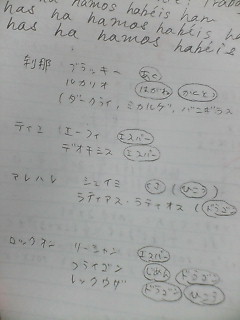 has ha hamos habéis han
has ha hamos habéis
刹那 ブラッキー あく
ルカリオ はがね かくとう
(ダークライ, ミカルゲ, バンギラス
ティエ (エーフィ エスパー
デオキシス エスパー
アレハレ シェイミ くさ (ひこう)
ラティアス・ラティオス (ドラゴン
ロックオン リーシャン エスパー
フライゴン じめん ドラゴン
レックウザ ドラゴン ひこう